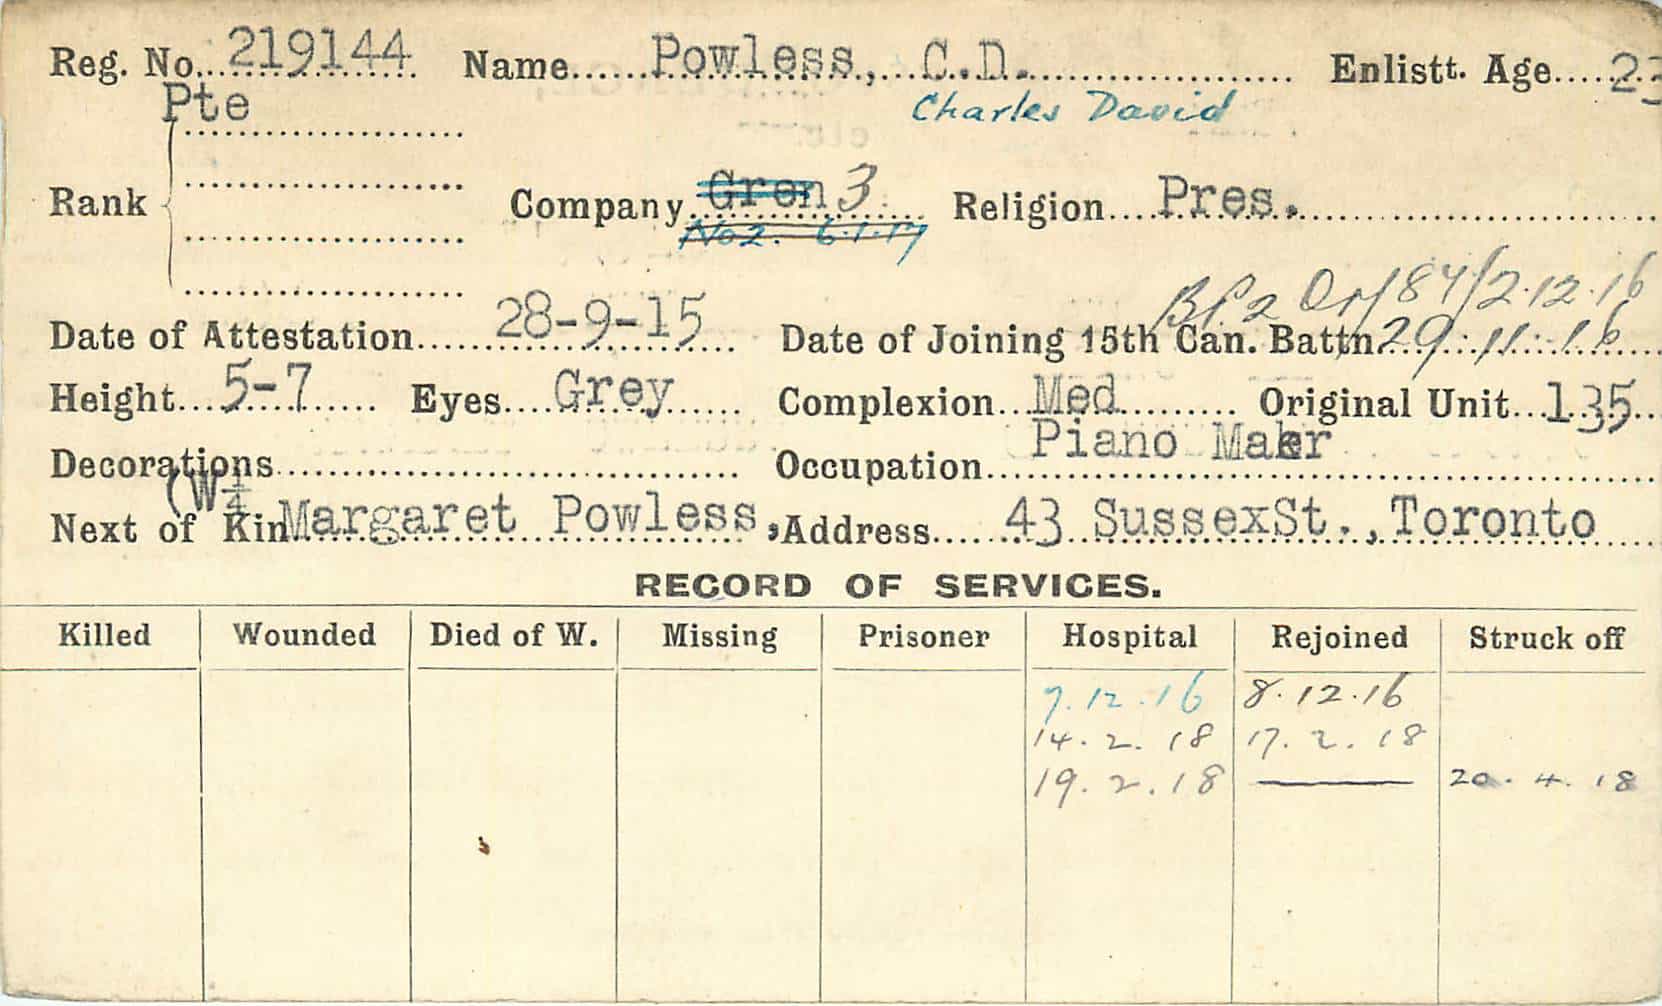 Reg. No. 219144 Name Powless, C.D. Enlistt. Age 23
Pte Charles David
Rank Company Gren 3 Religion Pres.
No 2. 6.1.17
Or/84/2.12.16
Date of Attestation 28-9-15 Date of Joining 15th Can. Battn 29.11.16
Height 5-7 Eyes Grey Complexion Med Original Unit 135
Decorations Occupation Piano Maker
(W
Next of Kin Margaret Powless, Address 43 SussexSt., Toronto
RECORD OF SERVICES.
Killed Wounded Died of W. Missing Prisoner Hospital Rejoined Struck off
7.12.16 8.12.16
14.2.18 17.2.18
19.2.18 — 20.4.18